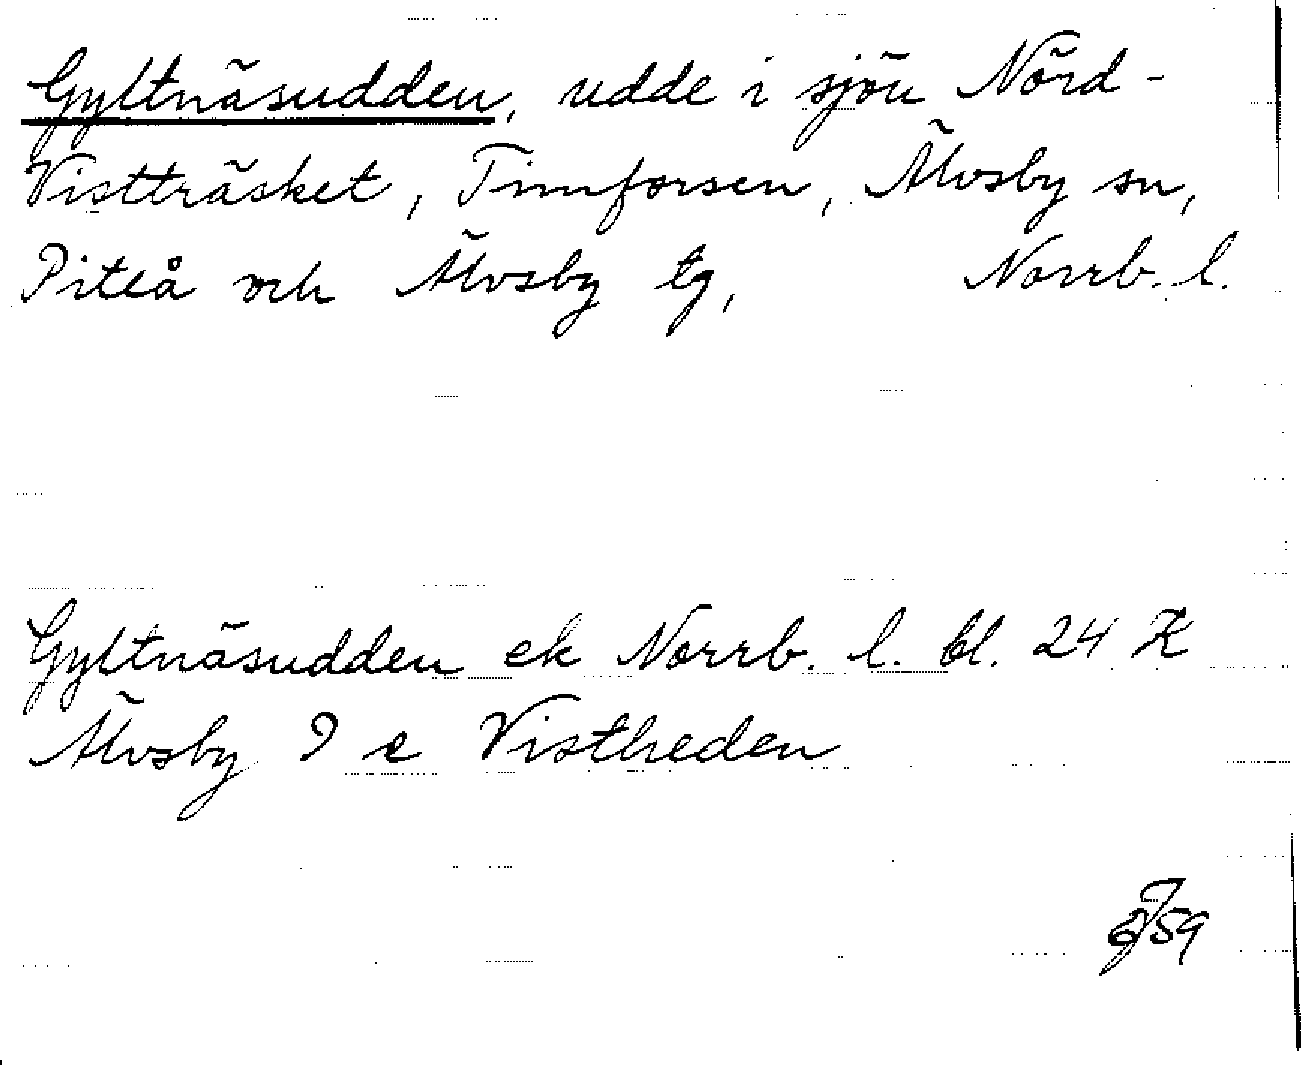 Gyltnäsudden, udde i sjön Nörd-
Vistträsket, Timforsen, Älvsby sn,
Piteå och Älvsby tg, Norrb. l.
Gyltnäsudden ek Norrb. l. bl. 24 K
Älvsby 9 e Vistheden